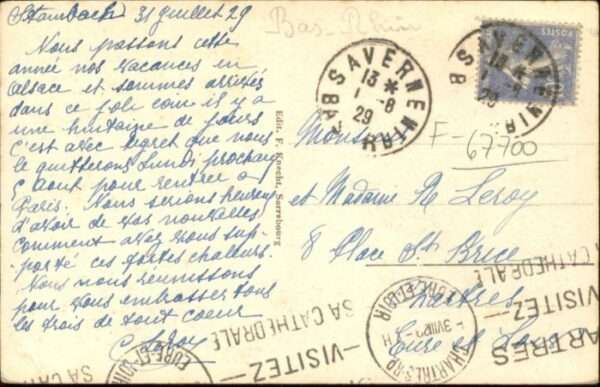 Stambach 31 Juillet 29
Nous passons cette
année nos vacances en
Alsace et sommes arrivés
dans ce joli coin il y a
une huitaine de jours
C'est avec regret que nous
le quitterons Lundi prochain
5 Aout pour rentrer à
Paris. Nous serions heureux
d'avoir de vos nouvelles
comment avez vous sup-
porté ces fortes chaleurs.
Nous nous réunissons
pour vous embrasser tous
les trois de tout coeur
Leroy
Edit. F. Knecht, Sarrebourg
Bas-Rhin
SAVERNE
13 *
1 -8
29
BAS-RHIN
POSTES
SAVERNE
13 *
1 -8
29
BAS-RHIN
F-67700
Monsieur
et Madame R Leroy
8 Place St Brice
Chartres
Eure et Loir
CHARTRES
-VISITEZ-
SA CATHEDRALE
CHARTRES RP
EURE-ET-LOIR
-VISITEZ-
SA CATHEDRALE
EURE-ET-LOIR